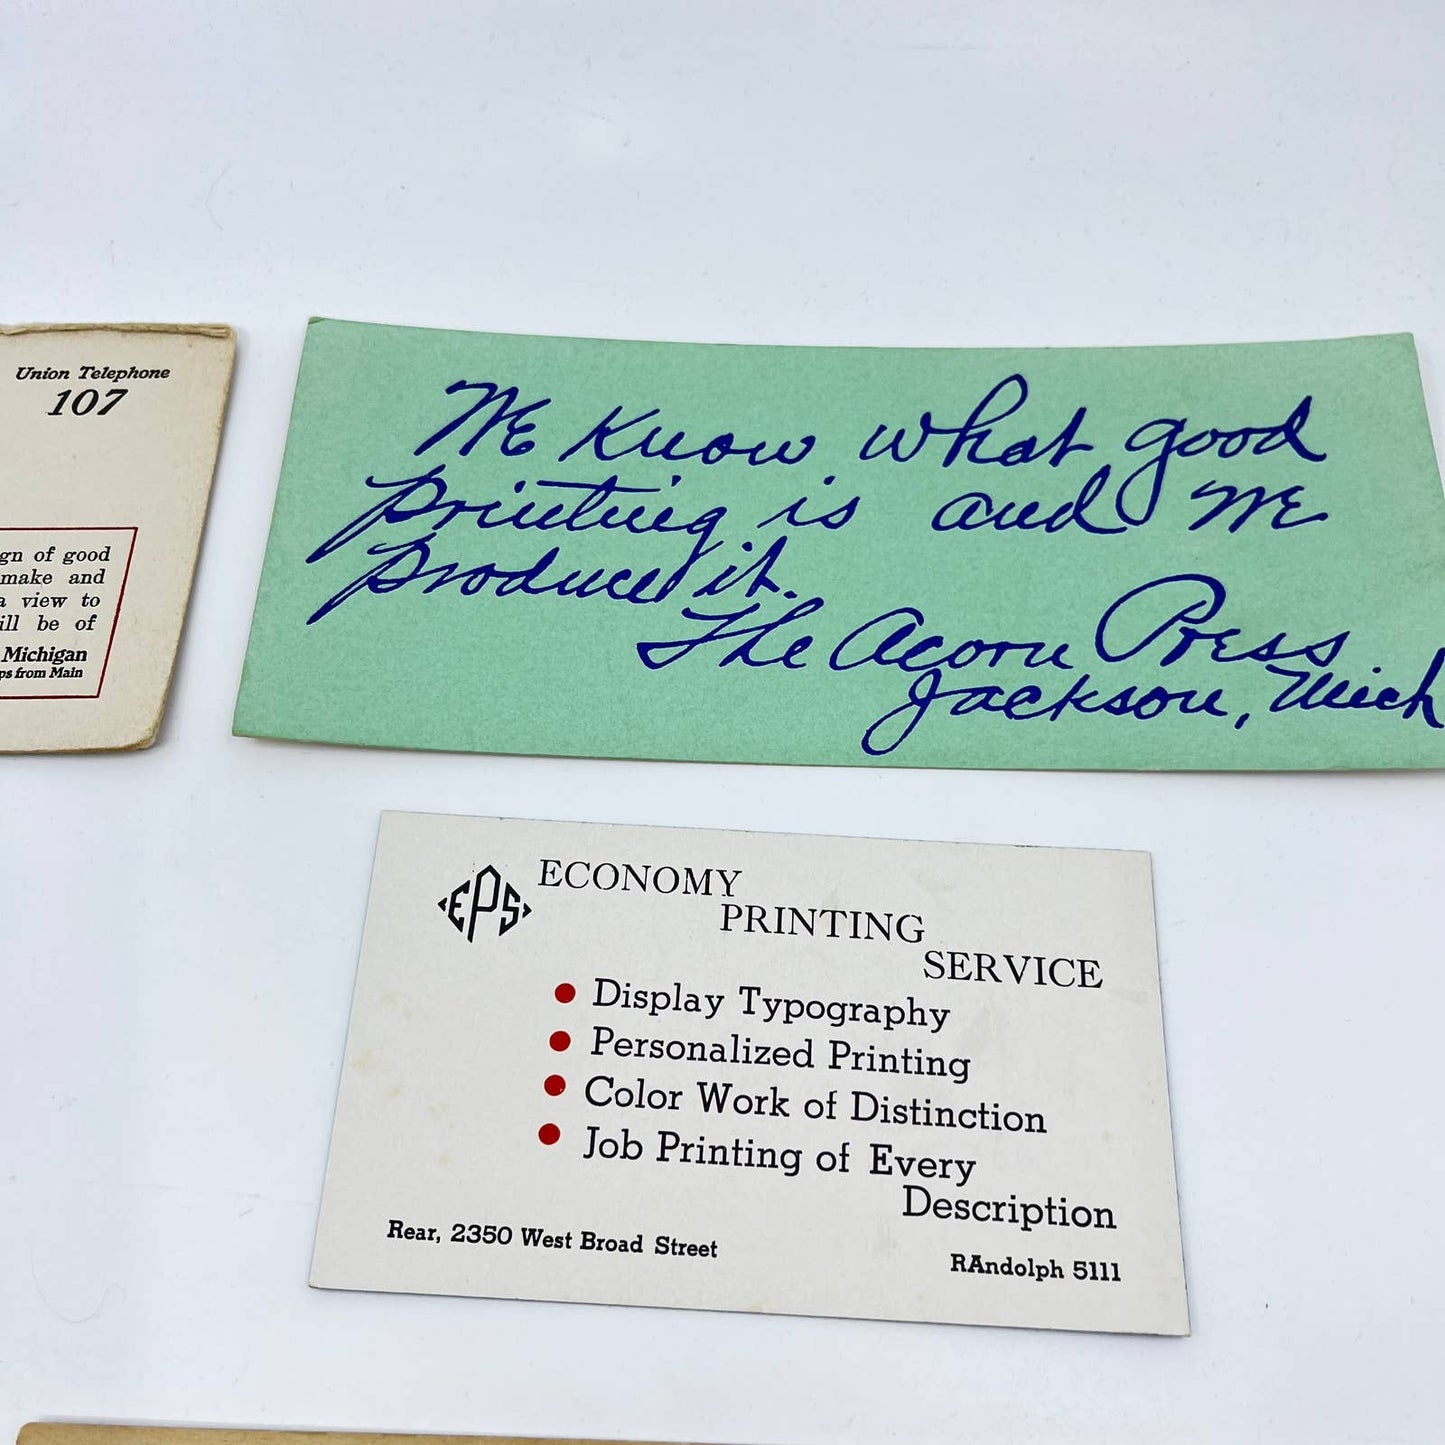 Union Telephone
107
gn of good
make and
a view to
ill be of
Michigan
ps from Main
WE Know what good
printing is and WE
produce it.
The Acorn Press
Jackson, Mich
EPS
ECONOMY
PRINTING
SERVICE
Display Typography
Personalized Printing
Color Work of Distinction
Job Printing of Every
Description
Rear, 2350 West Broad Street
RAndolph 5111